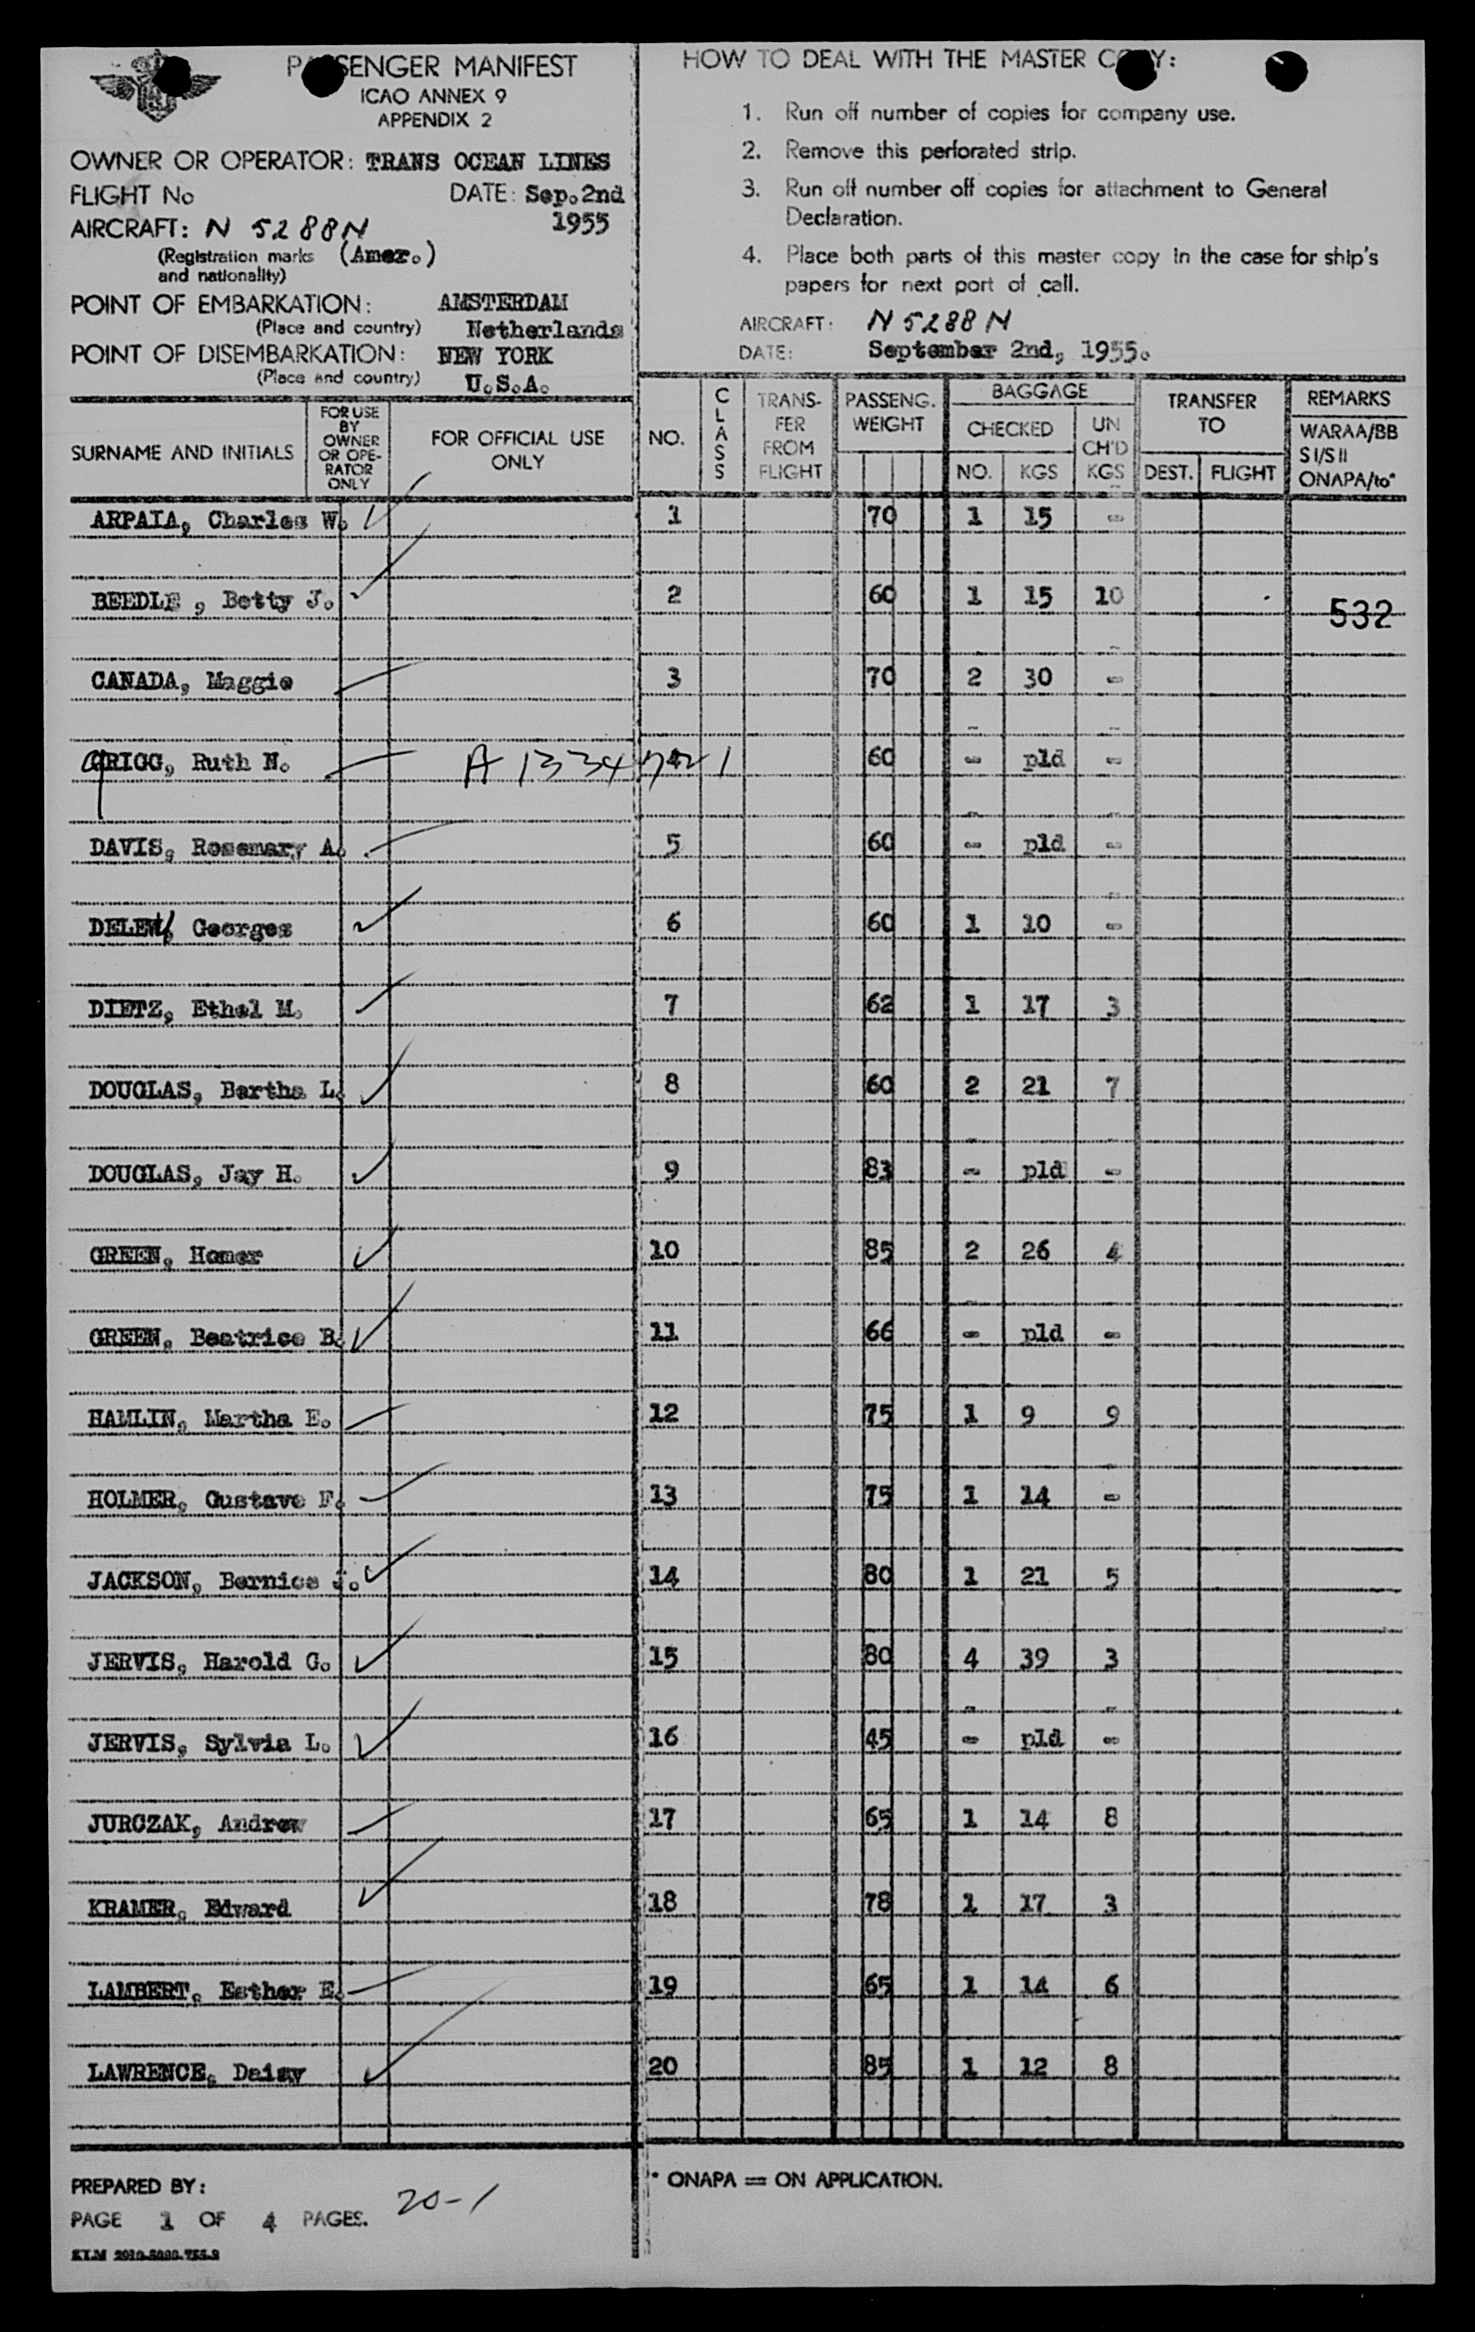 PASSENGER MANIFEST
ICAO ANNEX 9
APPENDIX 2
OWNER OR OPERATOR: TRANS OCEAN LINES
FLIGHT No DATE: Sep. 2nd
1955
AIRCRAFT: N 5288N
(Registration marks (Amer.)
and nationality)
POINT OF EMBARKATION: AMSTERDAM
(Place and country) Netherlands
POINT OF DISEMBARKATION: NEW YORK
(Place and country) U.S.A.
HOW TO DEAL WITH THE MASTER COPY:
1. Run off number of copies for company use.
2. Remove this perforated strip.
3. Run off number off copies for attachment to General
Declaration.
4. Place both parts of this master copy in the case for ship's
papers for next port of call.
AIRCRAFT: N 5288 N
DATE: September 2nd, 1955.
SURNAME AND INITIALS
FOR USE
BY
OWNER
OR OPE-
RATOR
ONLY
FOR OFFICIAL USE
ONLY
NO.
CLASS
TRANS-
FER
FROM
FLIGHT
PASSENG.
WEIGHT
BAGGAGE
CHECKED
NO. KGS
UN
CH'D
KGS
TRANSFER
TO
DEST. FLIGHT
REMARKS
WARAA/BB
SI/SII
ONAPA/to*
ARPAIA, Charles W. 1 70 1 15 -
BEEDLE , Betty J. 2 60 1 15 10
532
CANADA, Maggie 3 70 2 30 -
GRIGG, Ruth N. A 13347421 60 - pld -
DAVIS, Rosemary A. 5 60 - pld -
Georges 6 60 1 10 -
DIETZ, Ethel M. 7 62 1 17 3
DOUGLAS, Bertha L. 8 60 2 21 7
DOUGLAS, Jay H. 9 83 - pld -
GREEN, Homer 10 85 2 26 4
GREEN, Beatrice B. 11 66 - pld -
HAMLIN, Martha E. 12 75 1 9 9
HOLMER, Gustave F. 13 75 1 14 -
JACKSON, Bernice J. 14 80 1 21 5
JERVIS, Harold G. 15 80 4 39 3
JERVIS, Sylvia L. 16 45 - pld -
JURCZAK, Andrew 17 65 1 14 8
KRAMER, Edward 18 78 1 17 3
LAMBERT, Esther E. 19 65 1 14 6
LAWRENCE, Daisy 20 85 1 12 8
PREPARED BY:
PAGE 1 OF 4 PAGES. 20-1
* ONAPA = ON APPLICATION.